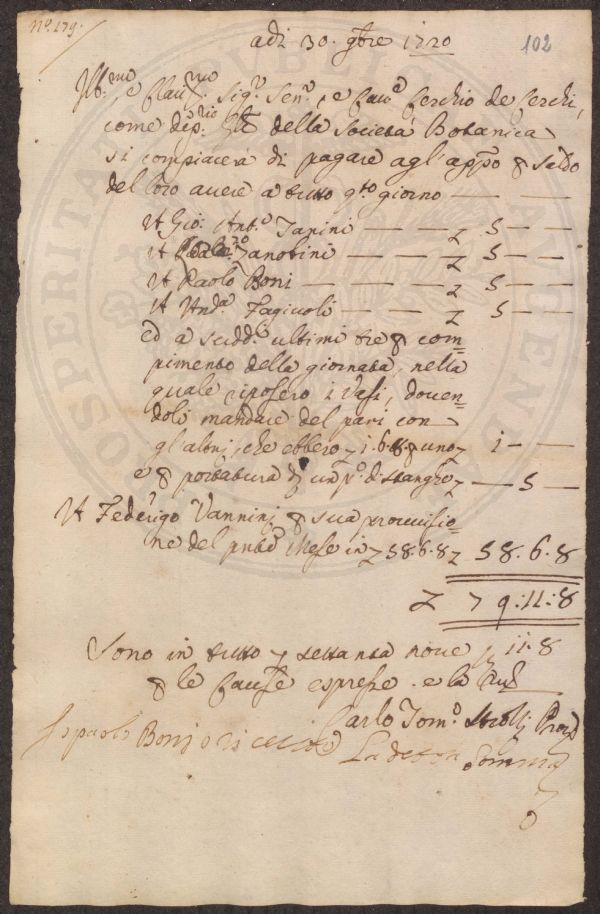 N.º 179.
adi 30. 9bre 1720
102
Ill:mo, e Clar:mo Sig:r Sen:re, e Cav:e Cerchio de Cerchi,
come Dep:rio Gle della Società Botanica
si compiacerà di pagare agl' app:o p saldo
del loro avere a tutto q:to giorno — — —
A Gio: Ant:o Tanini — — — £ 5 — —
A Zanobini — — £ 5 — —
A Paolo Boni — — — — £ 5 — —
A And:a Fagiuoli — — — £ 5 — —
ed a sudd:i ultimi tre p com=
pimento della giornata, nella
quale riposero i Vasi, doven=
doli mandare del pari con
gl'altri, che ebbero £ 1.6.8. p uno £ 1 — —
e p portatura di un p:o di stanghe £ — 5 —
A Federigo Vannini p sua provvisio=
ne del pnte Mese in £ 58.6.8 £ 58.6.8
£ 79:11:8
Sono in tutto £ settanta nove 11.8
p le cause espresse. e la
Carlo Tom:o Strozzi
Io paolo Boni o ricevuto La detta somma